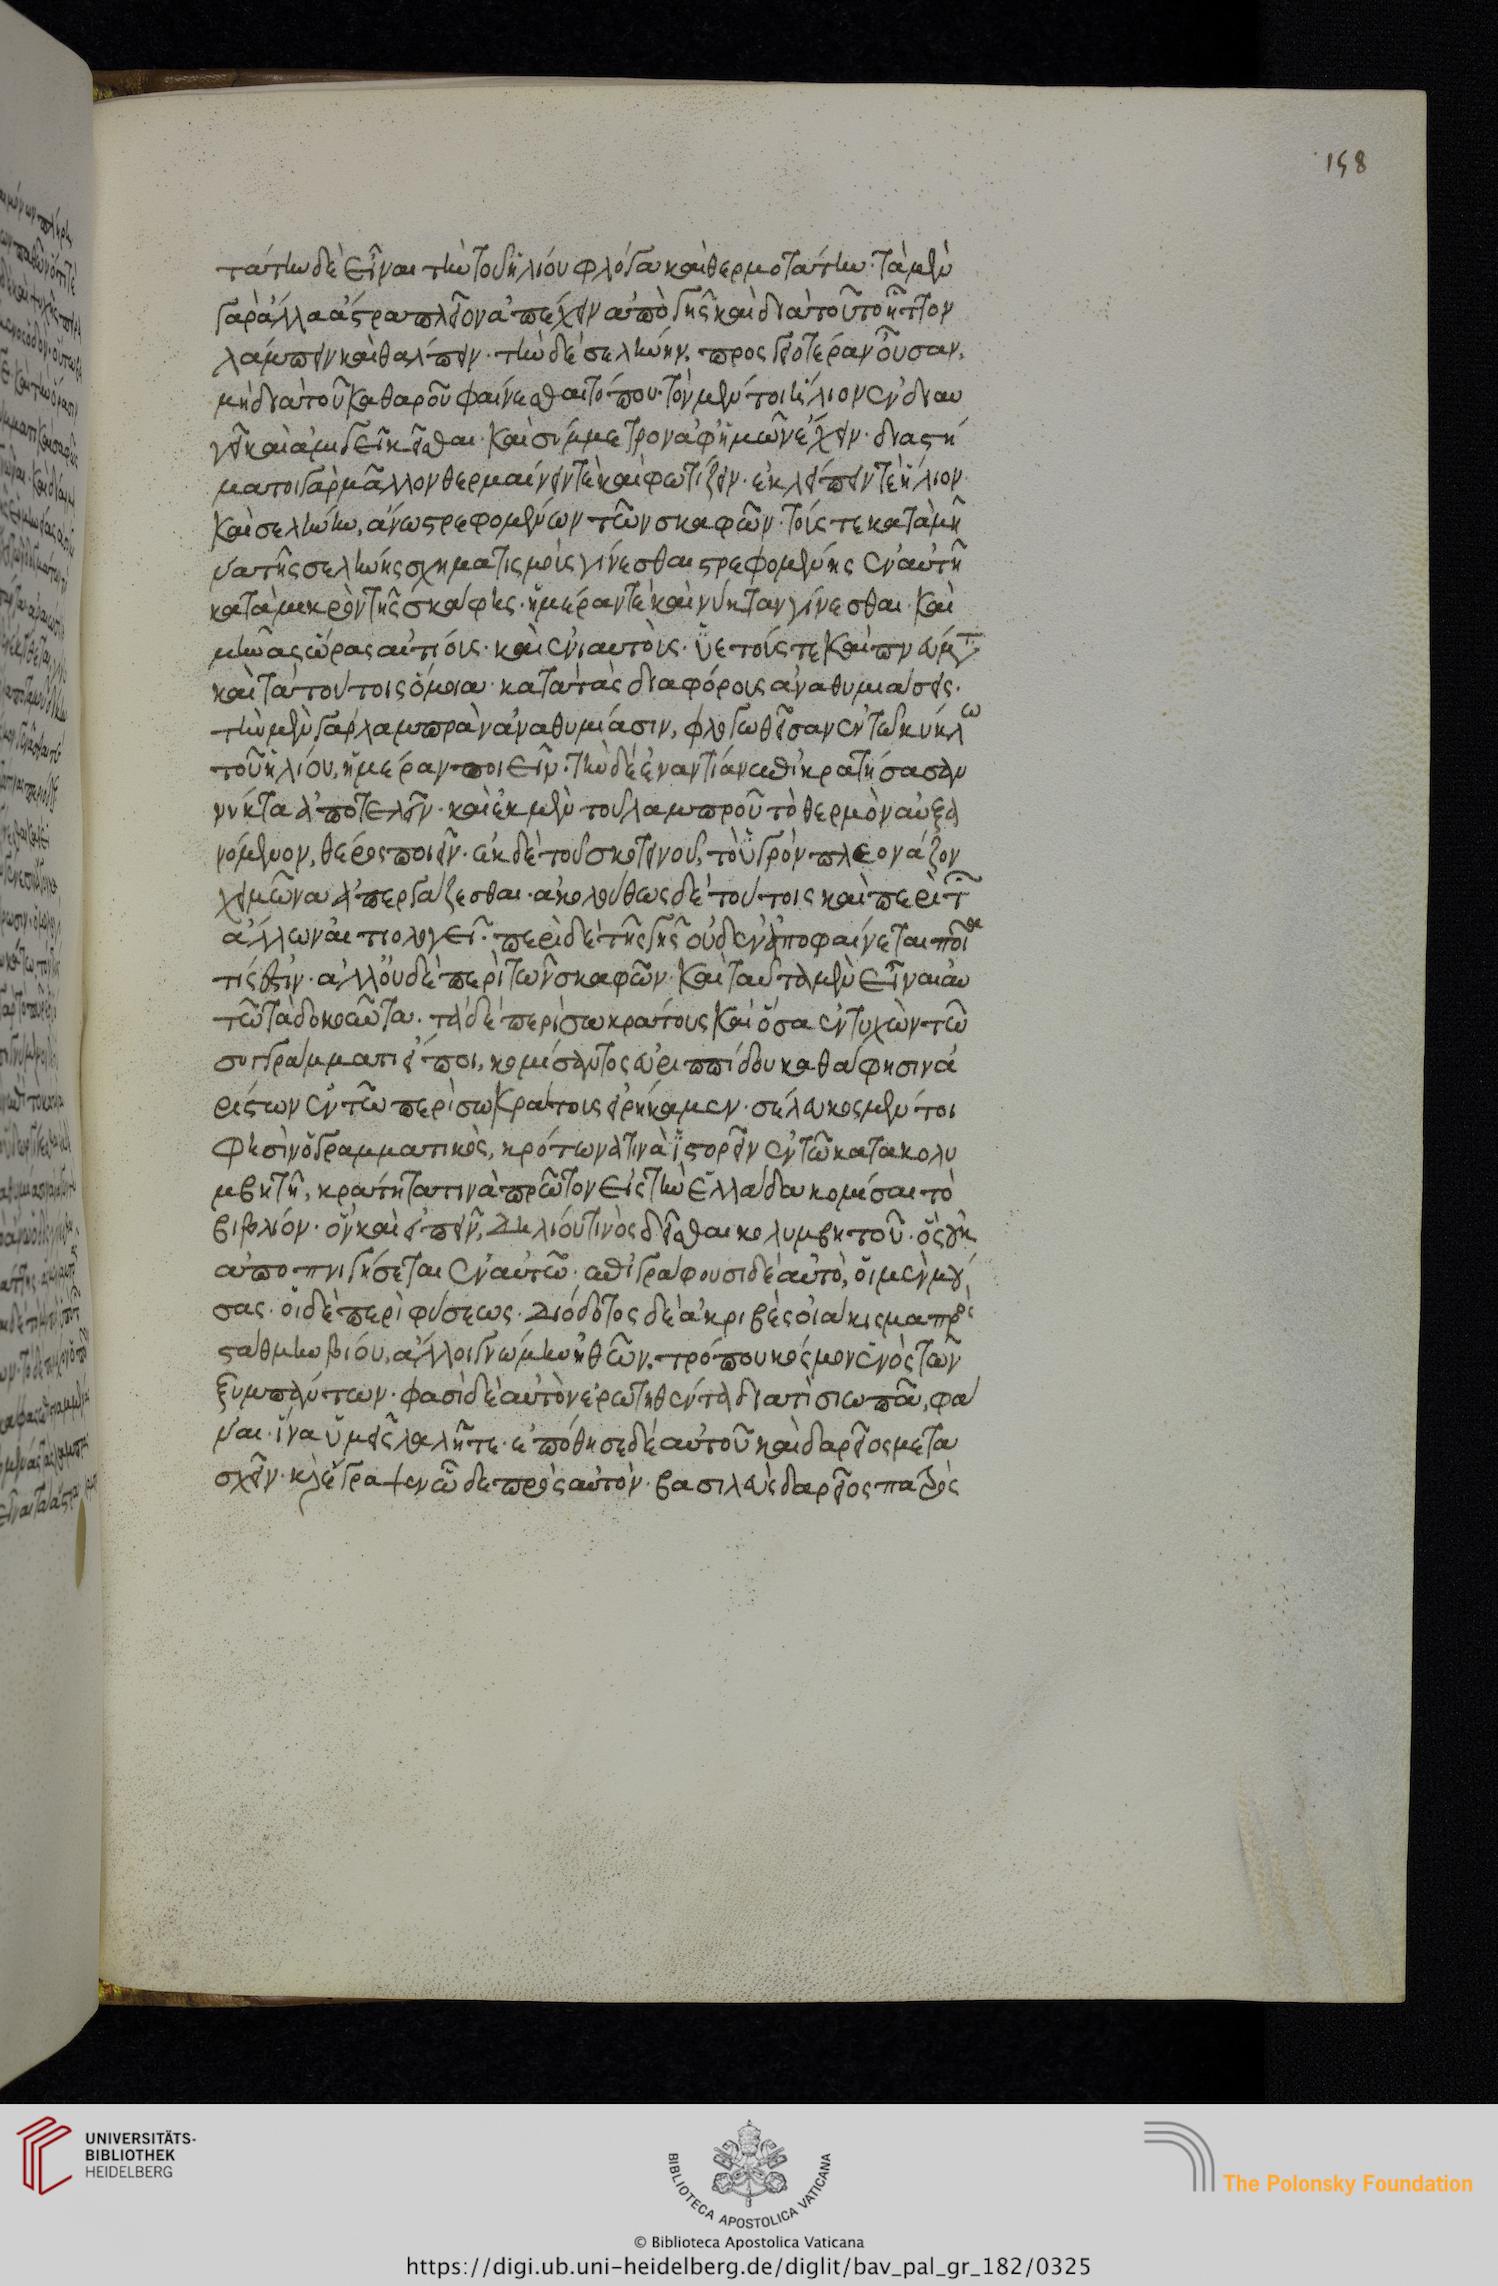 158
τάτην δὲ εἶναι τὴν τοῦ ἡλίου φλόγα καὶ θερμοτάτην· τὰ μὲν
γὰρ ἄλλα ἄστρα πλεῖον ἀπέχειν ἀπὸ γῆς καὶ διὰ τοῦτο ἧττον
λάμπειν καὶ θάλπειν· τὴν δὲ σελήνην, προσγειοτέραν οὖσαν,
μὴ διὰ τοῦ καθαροῦ φαίνεσθαι τόπου· τὸν μέντοι ἥλιον ἐν διαυ
γεῖ καὶ ἀμιγεῖ κεῖσθαι· καὶ σύμμετρον ἀφ' ἡμῶν ἔχειν· διαστή
μα τοιγὰρ μᾶλλον θερμαίνειν τὲ καὶ φωτίζειν· ἐκλείπειν τὲ ἥλιον
καὶ σελήνην, ἄνω στρεφομένων τῶν σκαφῶν· τούς τε κατὰ μῆ
να τῆς σελήνης σχηματισμοὺς γίνεσθαι στρεφομένης ἐν αὐτῇ
κατὰ μικρὸν τῆς σκάφης· ἡμέραν τὲ καὶ νύκταν γίνεσθαι· καὶ
μῆνας ὥρας αἰτίους· καὶ ἐνιαυτοὺς· ὑετούς τε καὶ πνεύμτ
καὶ τὰ τούτοις ὅμοια· κατὰ τὰς διαφόρους ἀναθυμιάσεις·
τὴν μὲν γὰρ λαμπρὰν ἀναθυμίασιν, φλογωθεῖσαν ἐν τῷ κύκλω
τοῦ ἡλίου, ἡμέραν ποιεῖν· τὴν δὲ ἐναντίαν ἐπικρατήσασαν
νύκτα ἀποτελεῖν· καὶ ἐκ μὲν τοῦ λαμπροῦ τὸ θερμὸν αὐξα
νόμενον, θέρος ποιεῖν· ἐκ δὲ τοῦ σκοτεινοῦ, τὸ ὑγρὸν πλεονάζον
χειμῶνα ἀπεργάζεσθαι· ἀκολούθως δὲ τούτοις καὶ περὶ τ
ἄλλων αἰτιολογεῖ· περὶ δὲ τῆς γῆς οὐδὲν ἀποφαίνεται ποία
τίς ἐστιν· ἀλλ' οὐδὲ περὶ τῶν σκαφῶν· καὶ ταῦτα μὲν εἶναι αὐ
τῶ τὰ δοκοῦντα· τὰ δὲ περὶ σωκράτους καὶ ὅσα ἐντυχὼν τῶ
συγγράμματι εἴποι, κομίσαντος εὐριππίδου καθά φησιν ἀ
ρίστων ἐν τῶ περὶ σωκράτους εἰρήκαμεν· σέλευκος μέντοι
φησὶν ὁ γραμματικὸς, κρότωνα τινὰ ἱστορεῖν ἐν τῶ κατακολυ
μβητῆ, κράτητα τινὰ πρῶτον εἰς τὴν ἑλλάδα κομίσαι τὸ
βιβλίον· ὃν καὶ εἰπεῖν, δηλίου τινὸς δεῖσθαι κολυμβητοῦ· ὃς οὐκ
ἀποπνιγήσεται ἐν αὐτῶ· ἐπιγράφουσι δὲ αὐτὸ, οἱ μὲν μού
σας· οἱ δὲ περὶ φύσεως· διόδοτος δὲ ἀκριβὲς οἰάκισμα πρὸς
στάθμην βίου, ἄλλοι γνώμην ἠθῶν. τρόπου κόσμον ἑνὸς τῶν
ξυμπάντων· φασὶ δὲ αὐτὸν ἐρωτηθέντα διατὶ σιωπᾶ, φά
ναι· ἵνα ὑμεῖς λαλῆτε· ἐπόθησε δὲ αὐτοῦ καὶ δαρεῖος μετα
σχεῖν· κὶ ἔγραψεν ὧδε πρὸς αὐτὸν· βασιλεὺς δαρεῖος πατρὸς
UNIVERSITÄTS-
BIBLIOTHEK
HEIDELBERG
BIBLIOTECA APOSTOLICA VATICANA
The Polonsky Foundation
© Biblioteca Apostolica Vaticana
https://digi.ub.uni-heidelberg.de/diglit/bav_pal_gr_182/0325